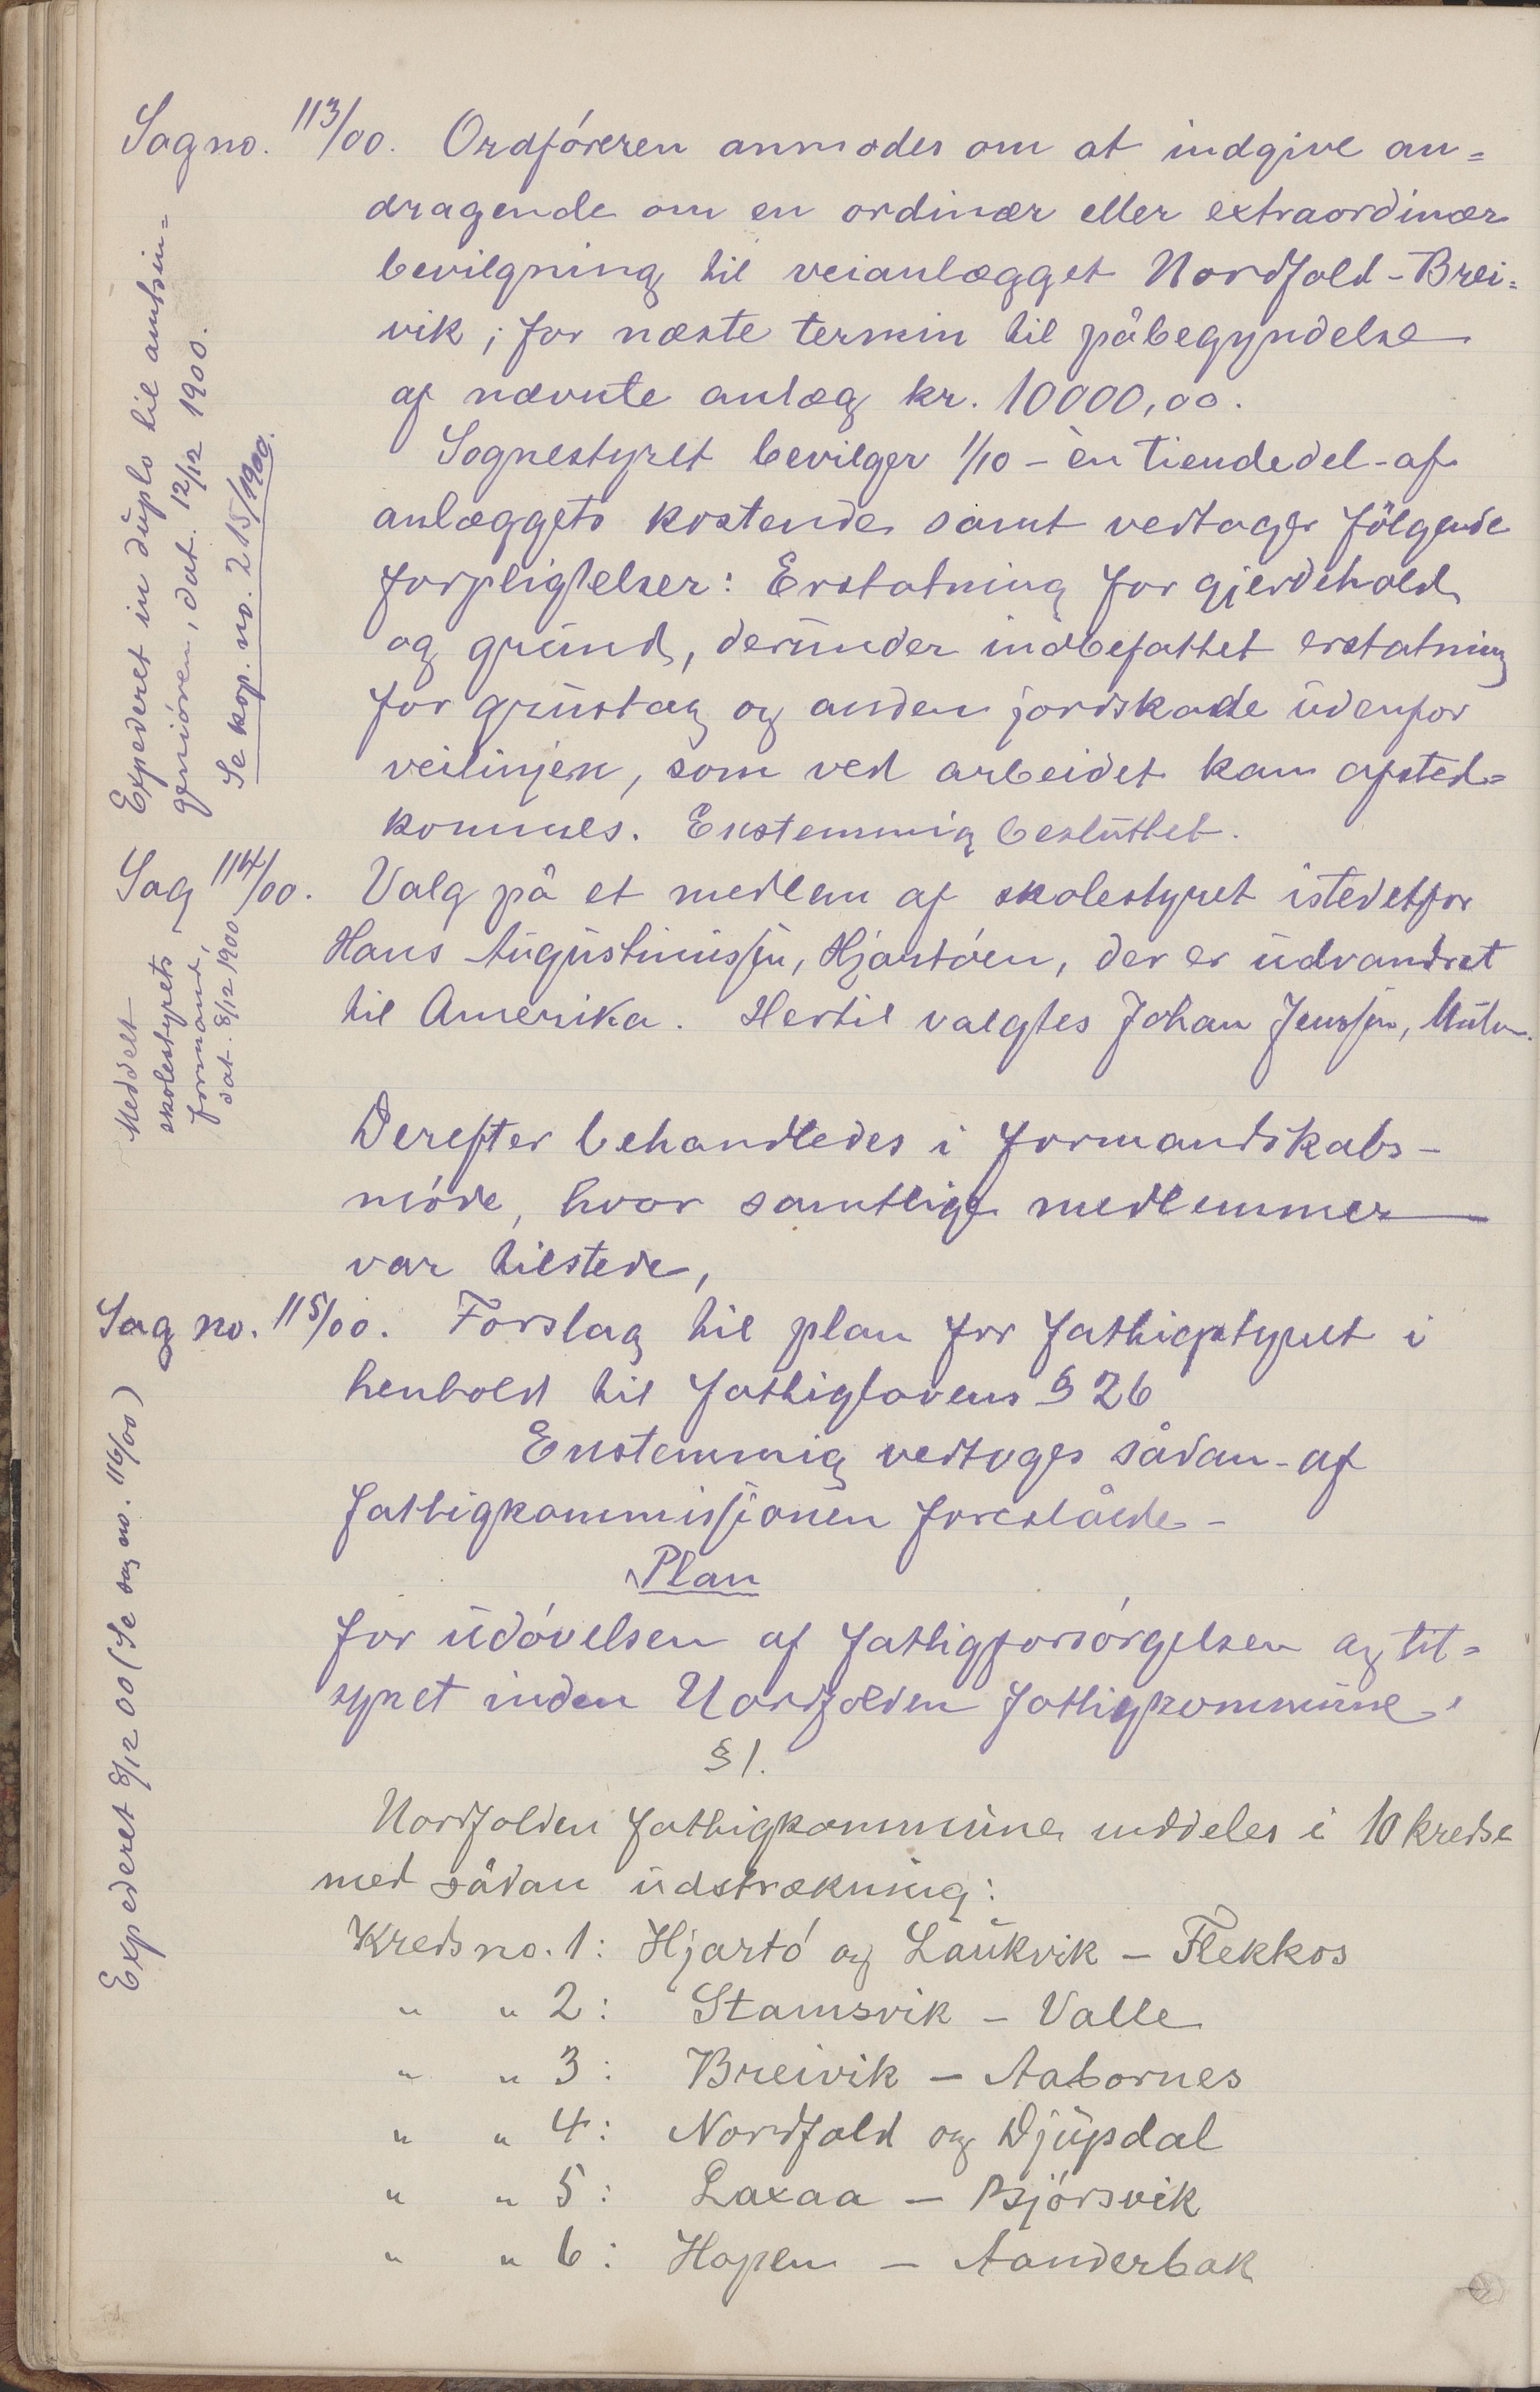 Sag no. 113/00. Ordføreren anmodes om at indgive an=
dragende om en ordinær eller extraordinær
bevilgning til veianlægget Nordfold-Brei=
vik; for næste termin til påbegyndelse
af nævnte anlæg kr. 10000,00.
Sognestyret bevilger 1/10 - èn tiendedel - af
anlæggets kostende samt vedtager følgende
forpligtelser: Erstatning for gjerdehold
og grund, derunder indbefattet erstatning
for grustag og anden jordskade udenfor
veilinjen, som ved arbeidet kan afsted=
kommes. Enstemmig besluttet.
Expederet in duplo til amtsin=
geniøren, dat. 12/12 1900.
Se kop. no. 215/1900.
Sag 114/00. Valg på et medlem af skolestyret istedetfor
Hans Augustinussen, Hjartøen, der er udvandret
til Amerika. Hertil valgtes Johan Jenssen,
Meddelt
skolestyrets
formand,
dat. 8/12 1900
Derefter behandledes i formandskabs-
møde, hvor samtlige medlemmer
var tilstede,
Sag no. 115/00. Forslag til plan for fattigstyret i
henhold til fattiglovens § 26
Enstemmig vedtoges sådan - af
fattigkommissionen foreslåede -
Plan
for udøvelsen af fattigforsørgelsen og til=
synet inden Nordfolden fattigkommune.
Expederet 8/12 00 (Se sag no. 116/00)
§ 1.
Nordfolden fattigkommune inddeles i 10 kredse
med sådan udstrækning:
Kreds no. 1: Hjartø og Laukvik - Flekkos
" " 2: Stamsvik - Valle
" " 3: Breivik - Aabornes
" " 4: Nordfold og Djupdal
" " 5: Laxaa - Bjørsvik
" " 6: Hopen - Aanderbak